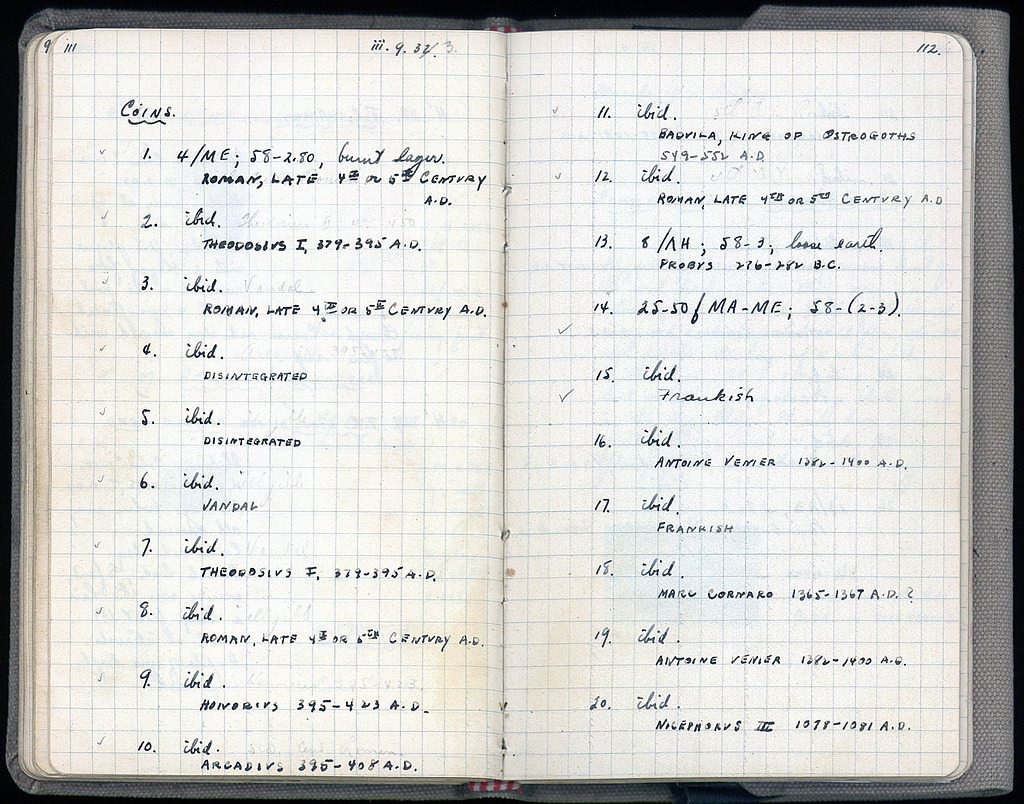 9 111
iii. 9. 32
Coins.
1. 4/ME; 58-2.80, burnt layer.
ROMAN, LATE 4TH OR 5TH CENTURY
A.D.
2. ibid.
THEODOSIUS I, 379-395 A.D.
3. ibid. Vandal
ROMAN, LATE 4TH OR 5TH CENTURY A.D.
4. ibid.
DISINTEGRATED
5. ibid.
DISINTEGRATED
6. ibid.
VANDAL
7. ibid.
THEODOSIUS I, 379-395 A.D.
8. ibid.
ROMAN, LATE 4TH OR 5TH CENTURY A.D.
9. ibid.
HONORIUS 395-423 A.D.
10. ibid.
ARCADIUS 395-408 A.D.
112.
11. ibid.
BADVILA, KING OF OSTROGOTHS
549-552 A.D.
12. ibid.
ROMAN, LATE 4TH OR 5TH CENTURY A.D
13. 8/ΛH; 58-3; loose earth.
PROBUS 276-282 B.C.
14. 25-50/MA-ME; 58-(2-3).
15. ibid.
Frankish
16. ibid.
ANTOINE VENIER 1382-1400 A.D.
17. ibid.
FRANKISH
18. ibid.
MARC CORNARO 1365-1367 A.D.?
19. ibid.
ANTOINE VENIER 1382-1400 A.D.
20. ibid.
NICEPHORUS III 1078-1081 A.D.